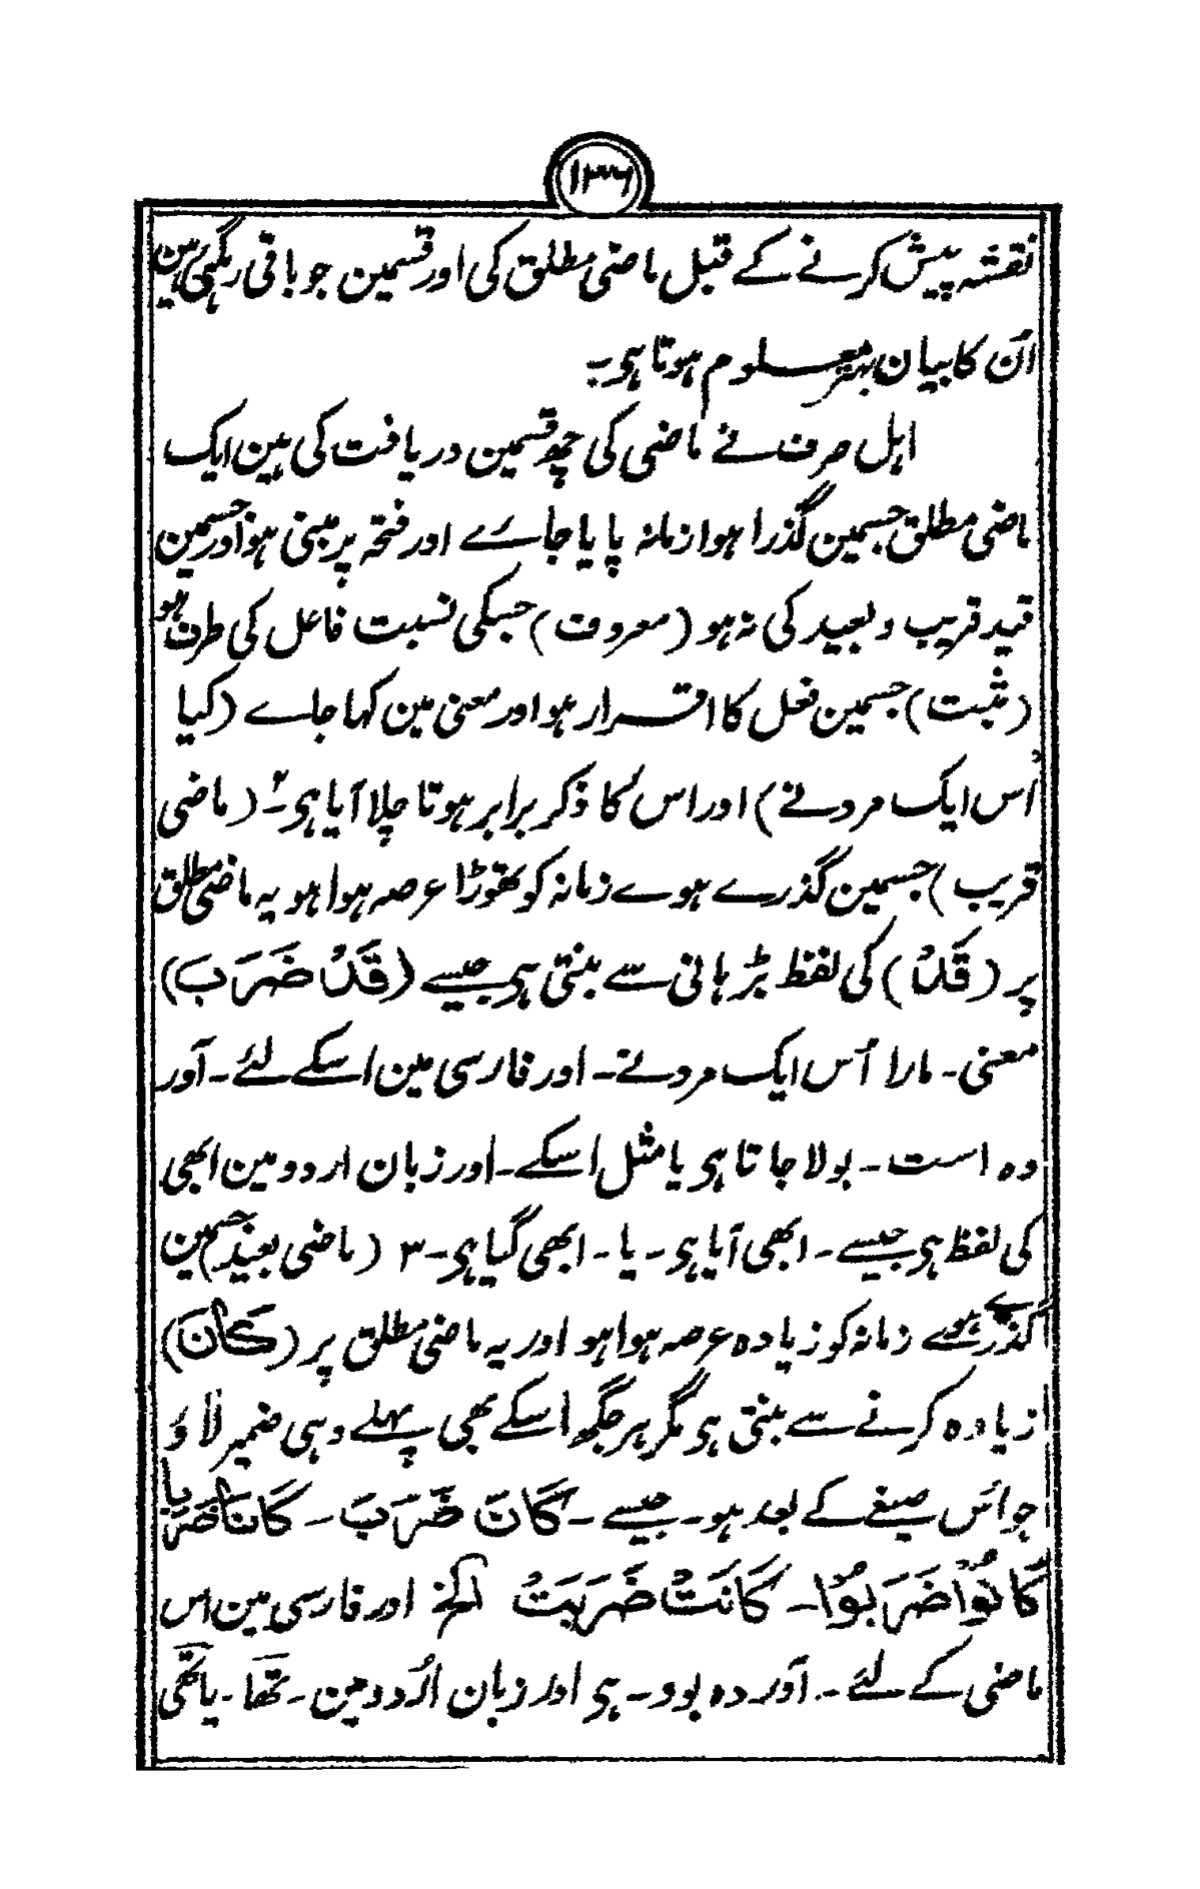 ۱۳۶
نقشہ پیش کرنے کے قبل ماضی مطلق کی اور قسمین جو باقی رہگئی ہین
اُن کا بیان بہتر معلوم ہوتا ہی۔
اہل صرف نے ماضی کی چھ قسمین دریافت کی ہین ایک
ماضی مطلق جسمین گذرا ہوا زمانہ پایا جاے اور فتحہ پر مبنی ہو اور جسمین
قید قریب و بعید کی نہ ہو (معروف) جسکی نسبت فاعل کی طرف ہو
(مثبت) جسمین فعل کا اقرار ہو اور معنی مین کہا جاے (کیا
اُس ایک مرد نے) اور اس کا ذکر برابر ہوتا چلا آیا ہی۔ ۲ (ماضی
قریب) جسمین گذرے ہوے زمانہ کو تھوڑا عرصہ ہوا ہو یہ ماضی مطلق
پر (قَدْ) کی لفظ بڑہانی سے بنتی ہی جیسے (قَدْ ضَرَبَ)
معنی۔ مارا اُس ایک مرد نے۔ اور فارسی مین اسکے لئے۔ آور
دہ است۔ بولا جاتا ہی یا مثل اسکے۔ اور زبان اردو مین ابھی
کی لفظ ہی جیسے۔ ابھی آیا ہی۔ یا۔ ابھی گیا ہی۔ ۳ (ماضی بعید) جسمین
گذرے ہوے زمانہ کو زیادہ عرصہ ہوا ہو اور یہ ماضی مطلق پر (کَانَ)
زیادہ کرنے سے بنتی ہی مگر ہر جگھ اسکے بھی پہلے وہی ضمیر لاؤ
جو اُس صیغے کے بعد ہو۔ جیسے۔ کَانَ ضَرَبَ۔ کَانَا ضَرَبَا
کَانُوْا ضَرَبُوْا۔ کَانَتْ ضَرَبَتْ الخ اور فارسی مین اس
ماضی کے لئے۔ آوردہ بود۔ ہی اور زبان اُردو مین۔ تھا۔ یا تھی